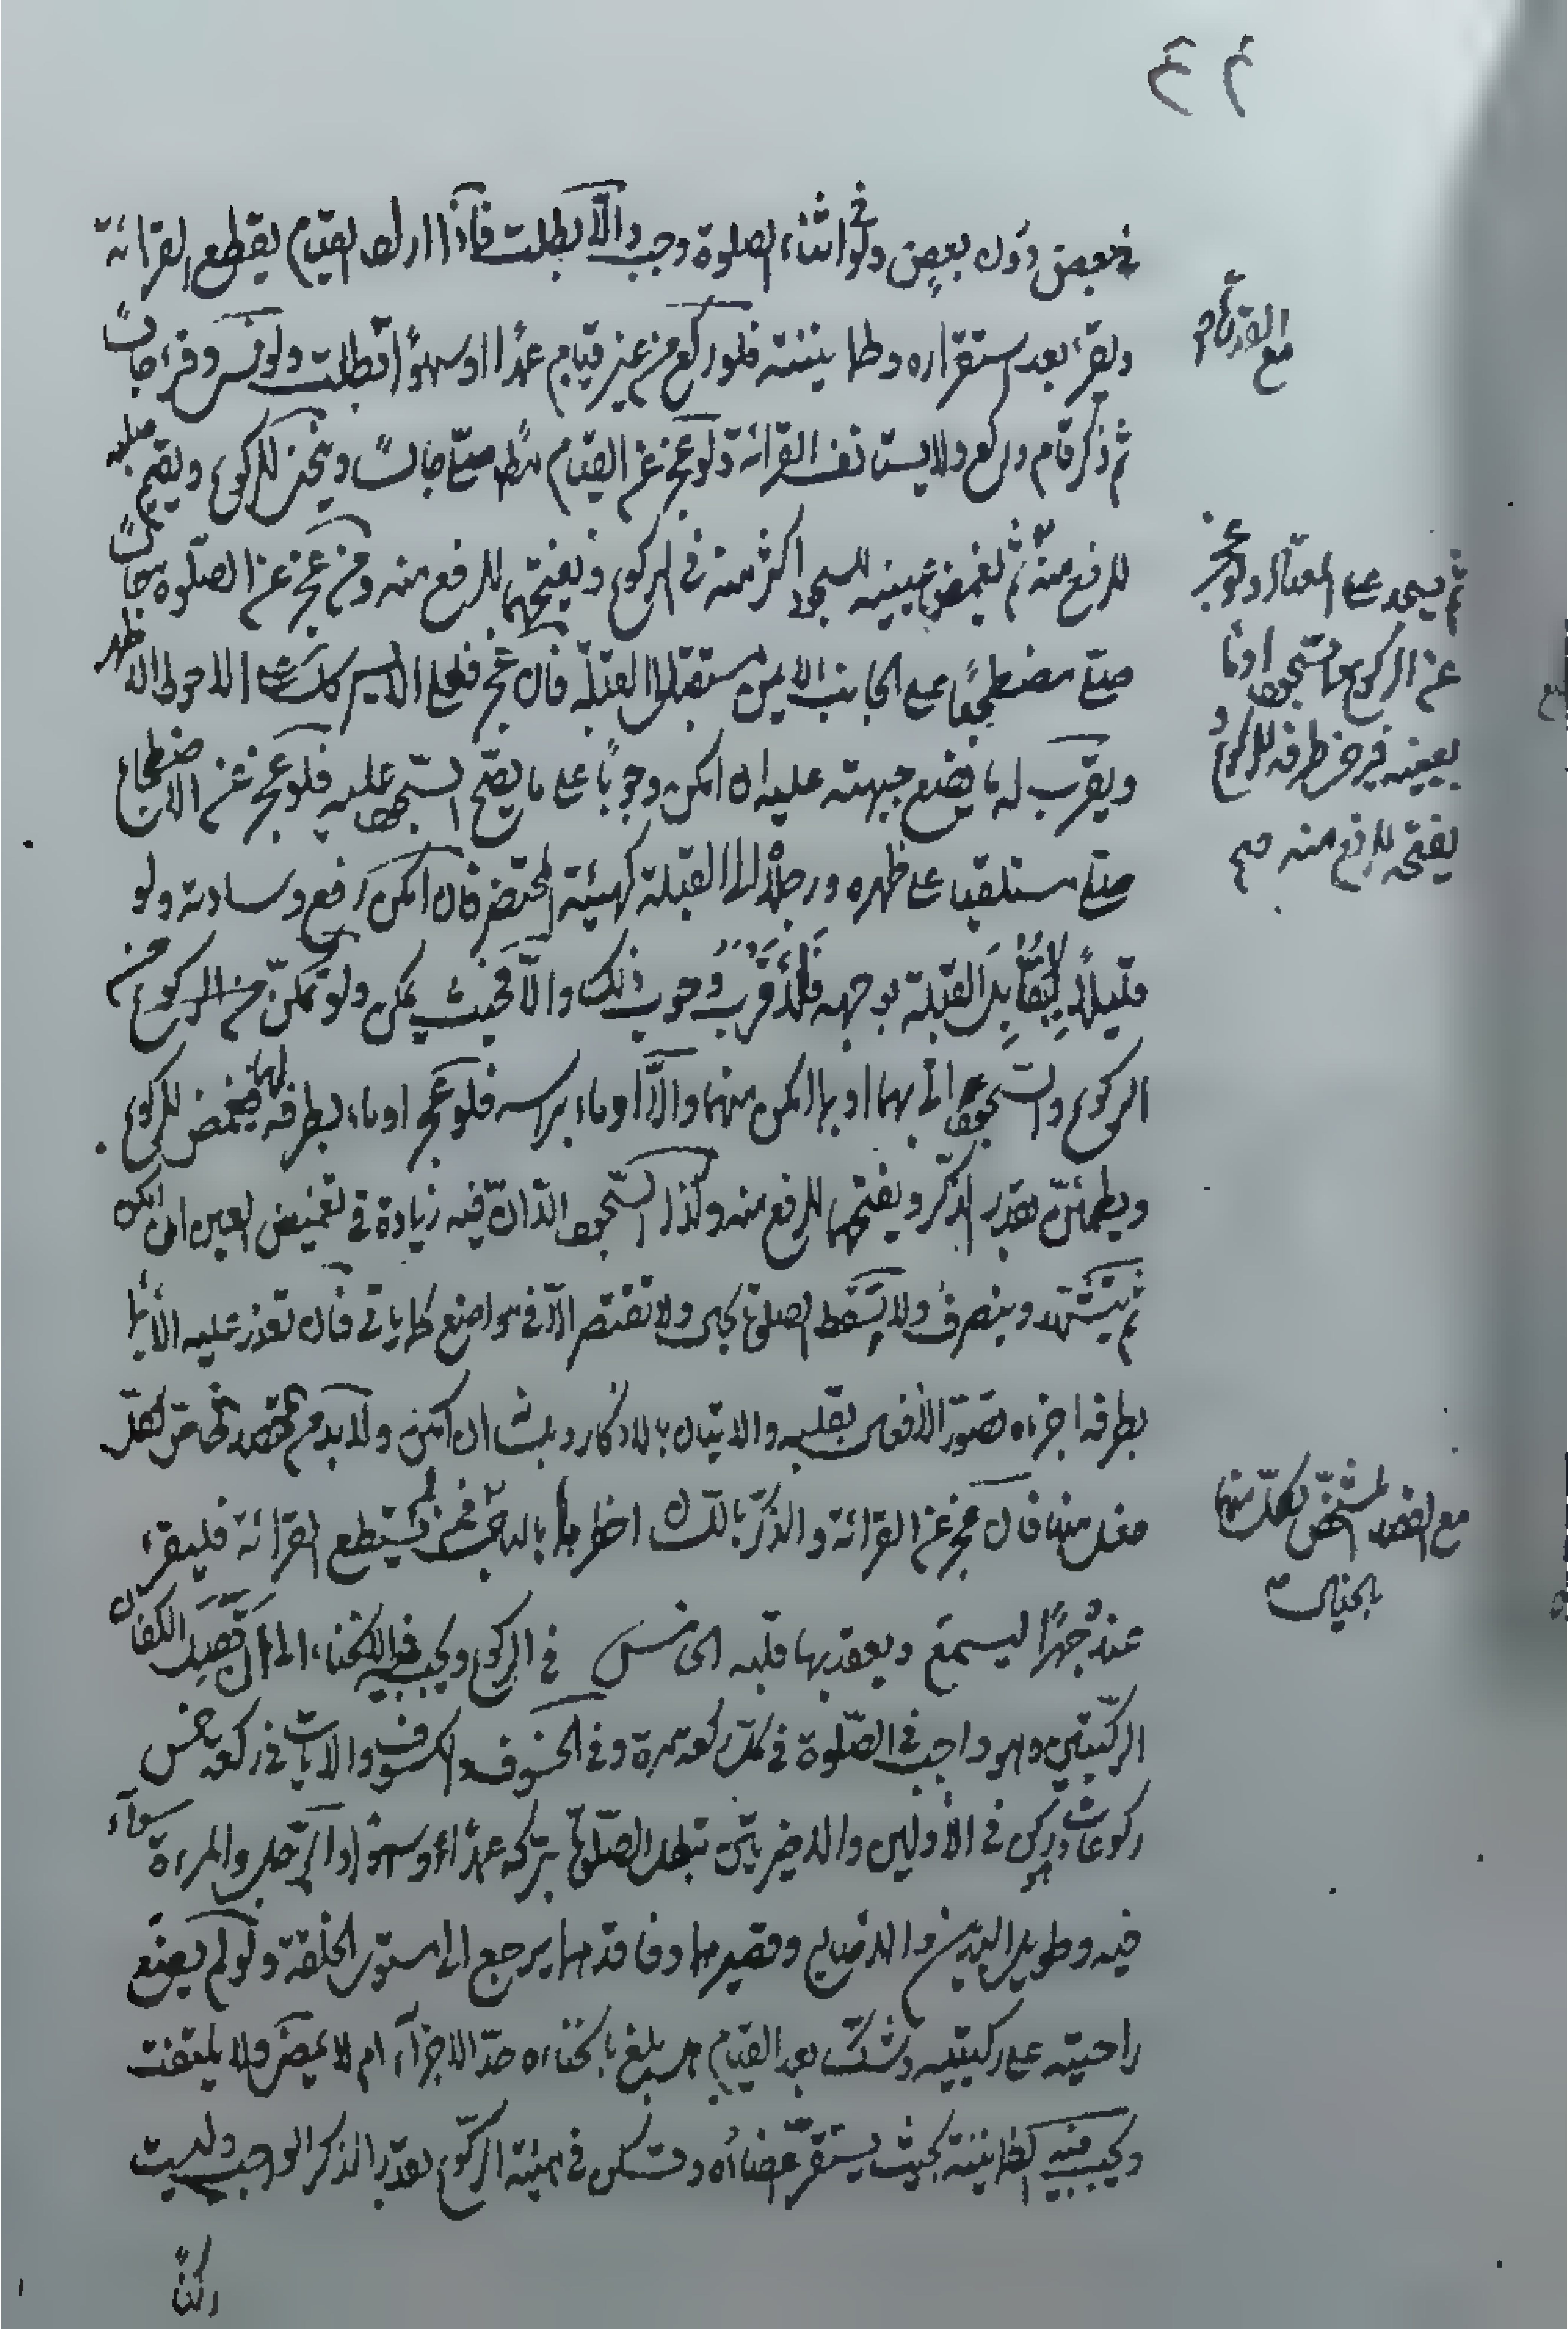 في بعض دون بعض ولو في اثناء الصلوة وجب والّا بطلت فاذا ادرك القيام يقطع القرائة
ويقرء بعد استقراره وطمانينته فلو ركع من غير قيام عمدًا او سهوًا بطلت ولو نسي وقرء جالسًا
ثم ذكر قام وركع ولا يستانف القرائة ولو عجز عن القيام مط صلّى جالسًا وينحني للركوع ويقيم صلبه
للرفع منه ثم يغمض عينيه للسجود اكثر منه في الركوع ويفتحهما للرفع منه ومن عجز عن الصلوة جالسًا
صلّى مضطجعًا على الجانب الايمن مستقبل القبلة فان عجز فعلى الايسر كذلك على الاحوط الاظهر
ويقرب له ما يضع جبهته عليه ان امكن وجوبًا على ما يصحّ السّجود عليه فلو عجز عن الاضطجاع
صلّى مستلقيا على ظهره ورجلاه الى القبلة كهيئة المحتضر فان امكن رفع وسادته ولو
قليلًا ليقابل القبلة بوجهه فالاقرب وجوب ذلك والّا فحيث يمكن ولو تمكّن من الركوع من
الركوع والسّجود اتى بهما او بما امكن منهما والّا اوماء براسه فلو عجز اوماء بطرفه لهما فيغمض للركوع
ويطمئنّ بقدر الذكر ويفتحهما للرفع منه وكذا السّجود الّا انّ فيه زيادة في تغميض العين ان امكن
ثم يتشهد وينصرف ولا يسقط الصلوة بحال ولا تقتصر الّا في مواضع كما ياتي فان تعذر عليه الايماء
بطرفه اجزاه تصوّر الافعال بقلبه والاتيان بالاذكار بلسانه ان امكن ولا بد من قصد خاص لكل
فعل منها فان عجز عن القرائة والذكر باللسان اخطرها بالبال فمن لم يستطع القرائة فليقرء
عنده جهرًا ليسمع ويعقد بها قلبه الخامس في الركوع ويجب فيه الانحناء الى ان تصل الكفان
الركبتين وهو واجب في الصّلوة في كل ركعة مرة وفي الخسوف والكسوف والايات في ركعة خمس
ركوعات وهو ركن في الاوليين والاخيرتين تبطل الصّلوة بتركه عمدًا او سهوًا والرّجل والمرءة سواء
فيه وطويل اليدين والاصابع وقصيرهما وفاقدهما يرجع الى مستوى الخلقة ولو لم يضع
راحتيه على ركبتيه وشكّ بعد القيام هل بلغ بانحنائه حدّ الاجزاء ام لا يمضي ولا يلتفت
ويجب فيه الطمانينة بحيث يستقرّ اعضاؤه وتسكن في هيئة الركوع بقدر الذكر الواجب وليست
ركنًا
مع القدرة
ثم يسجد على المعتاد ولو عجز
عن الركوع والسّجود اوماء
بعينيه فيرخي طرفه للركوع و
يفتحه للرفع منه صح
مع القصد المشخص لكل منها
بالجنان